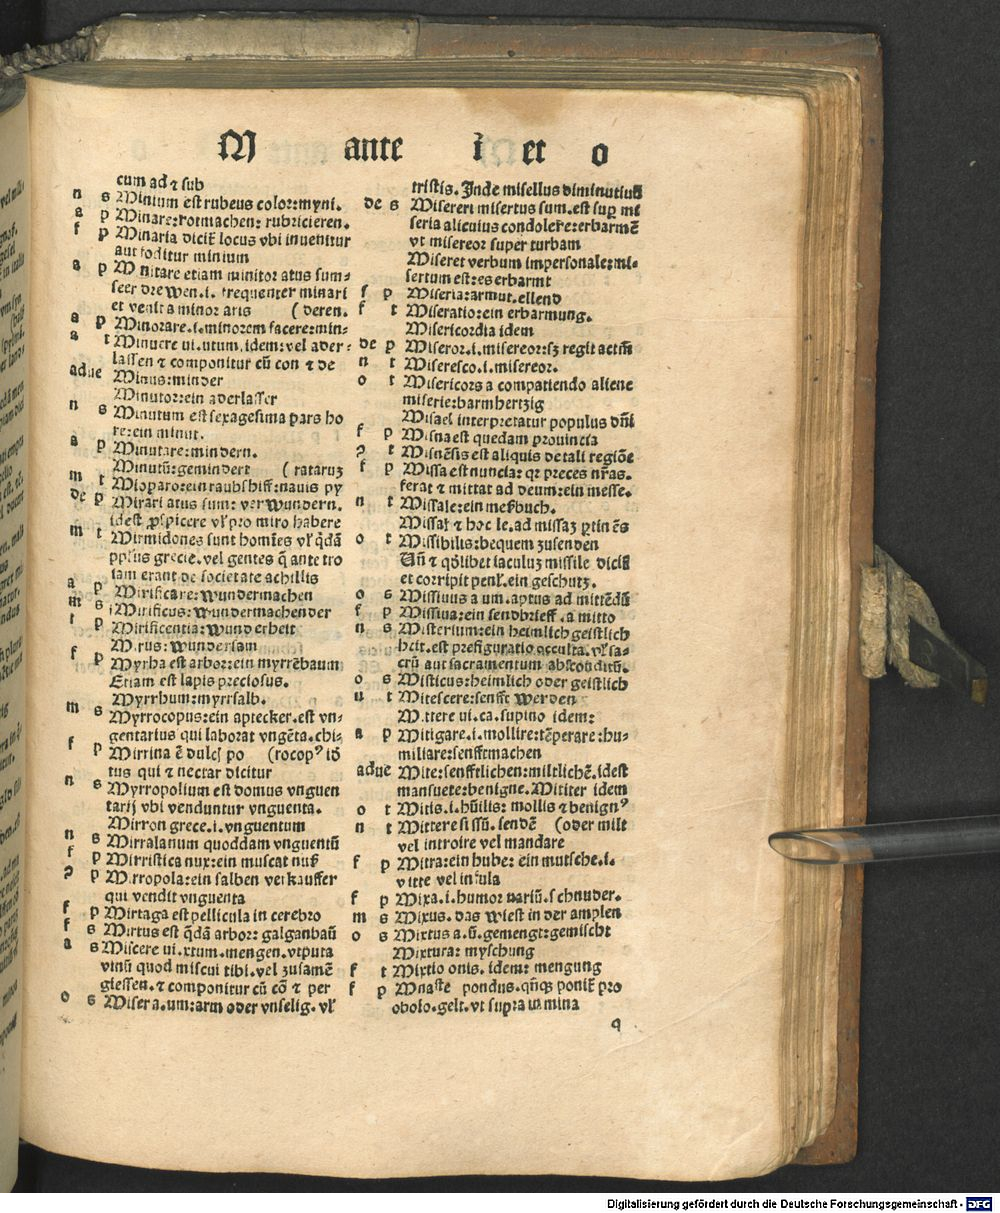 M ante i et o
cum ad ⁊ sub
n s Minium est rubeus color: myni.
a p Miniare: rotmachen: rubricieren.
f p Minaria dicit̃ locus vbi inuenitur
aut foditur minium
a p Minitare etiam minitor atus sum:
seer drewen .i. frequenter minari
et venit a minor aris (deren.
a p Minorare .i. minorem facere: min-
a t Minuere ui. utum. idem: vel ader-
lassen ⁊ componitur cũ con ⁊ de
adue Minus: minder
Minutor: ein aderlasser
n s Minutum est sexagesima pars ho
re: ein minut.
a p Minutare: mindern.
Minutũ: gemindert (rataruz
m t Mioparo: ein raubschiff: nauis py
de p Mirari atus sum: verwundern.
idest ꝓspicere vl̛ pro miro habere
m t Mirmidones sunt homĩes vl̛ q̃dã
pplũs grecie. vel gentes q̃ ante tro
iam erant de societate achillis
a p Mirificare: wundermachen
m s Mirificus: wundermachender
f p Mirificentia: wunderheit
Mirus: wundersam
f p Myrha est arbor: ein myrrẽbaum
Etiam est lapis preciosus.
Myrrhum: myrrsalb.
m s Myrrocopus: ein aptecker. est vn-
gentarius qui laborat vngẽta. chi-
f p Mirrina ẽ dulc̛ po (rocopꝰ
tus qui ⁊ nectar dicitur
n s Myrropolium est domus vnguen
tarij vbi venduntur vnguenta.
Mirron grece .i. vnguentum
n s Mirralanum quoddam vnguentũ
f p Mirristica nux: ein muscat nuß
ꝯ p Mirropola: ein salben verkauffer
qui vendit vnguenta
f p Mirtaga est pellicula in cerebro
f s Mirtus est q̃dã arbor: galganbaũ
a s Miscere ui. xtum. mengen. vtputa
vinũ quod miscui tibi. vel zusamẽ
giessen. ⁊ componitur cũ cõ ⁊ per
o s Miser a. um: arm oder vnselig. vl̛
tristis. Inde misellus diminutiuũ
de s Misereri misertus sum. est sup̱ mi
seria alicuius condolere: erbarmẽ
vt misereor super turbam
Miseret verbum impersonale: mi-
sertum est: es erbarmt
f p Miseria: armut. ellend
f t Miseratio: ein erbarmung.
Misericordia idem
de p Miseror .i. misereor: sz regit actm̃
n t Miseresco .i. misereor.
o t Misericors a compatiendo aliene
miserie: barmhertzig
Misael interpretatur populus dñi
f p Misna est quedam prouincia
ꝯ t Misnẽsis est aliquis de tali regiõe
f p Missa est nuncia: qz preces nr̃as.
ferat ⁊ mittat ad deum: ein messe.
n t Missale: ein meßbuch.
Missal̛ ⁊ hoc le. ad missaz ꝑtinẽs
o t Missibilis: bequem zusenden
Uñ ⁊ qd̛libet iaculuz missile dicit̃
et corripit penl̛. ein geschutz.
o s Missiuus a um. aptus ad mittẽdũ
f p Missiua: ein sendbrieff. a mitto
n s Misterium: ein heimlich geistlich
heit. est prefiguratio occulta. vl̛ sa-
crũ aut sacramentum absconditũ.
o s Misticus: heimlich oder geistlich
u t Mitescere: senfft werden
Mittere ui. ca. supino idem:
a p Mitigare .i. mollire: tẽperare: hu-
miliare: senfftmachen
adue Mite: senfftlichen: miltlichẽ. idest
mansuete: benigne. Mititer idem
o t Mitis .i. hũilis: mollis ⁊ benignꝰ
n t Mittere si ssũ. sendẽ (oder milt
vel introire vel mandare
f p Mitra: ein hube: ein mutsche .i.
vitte vel insula
f p Mixa .i. humor nariũ. schnuder.
m s Mixus. das wiest in der amplen
o s Mixtus a. ũ. gemengt: gemischt
Mixtura: myschung
f t Mixtio onis. idem: mengung
f p Mnaste pondus. qñqz ponit̃ pro
obolo. gelt. vt supra in mina
q
Digitalisierung gefördert durch die Deutsche Forschungsgemeinschaft - DFG